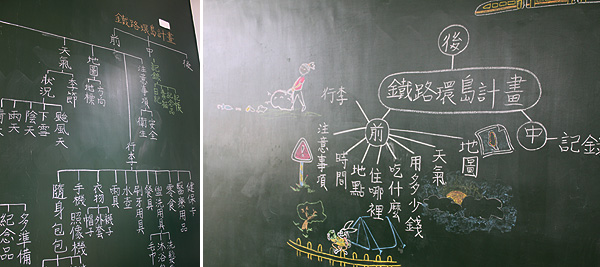 鐵路環島計畫
前
中
後
天氣
地圖
注意事項
記錄
狀況
季節
方向
地標
衛生
安全
雨天
陰天
下雪
颱風天
行李
隨身包包
手機
照像機
衣物
帽子
外套
襪子
雨具
水壺
刷牙用具
餐具
盥洗用具
零食
醫藥用品
健保卡
毛巾
紀念品
多準備
後
鐵路環島計畫
中
前
行李
注意事項
時間
地點
住哪裡
吃什麼
用多少錢
天氣
地圖
?